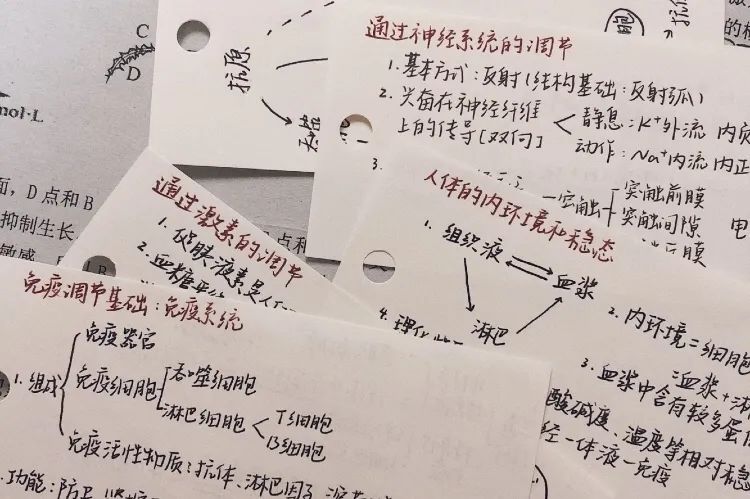 C
D
mol·L
面，D点和B
抑制生长
敏感
抗原
通过神经系统的调节
1. 基本方式：反射（结构基础：反射弧）
2. 兴奋在神经纤维
上的传导［双向］
静息：K⁺外流 内负
动作：Na⁺内流 内正
3.
突触
突触前膜
突触间隙
后膜
电
通过激素的调节
1. 促胰液素是人们
2. 血糖平
点和
B
人体的内环境和稳态
1. 组织液
血浆
淋巴
2. 内环境=细胞
=血浆+淋
3. 血浆中含有较多蛋
4. 理化性
酸碱度、温度等相对稳
经—体液—免疫
免疫调节基础：免疫系统
1. 组成
免疫器官
免疫细胞
吞噬细胞
淋巴细胞
T细胞
B细胞
免疫活性物质：抗体、淋巴因子、溶菌
功能：防卫、监